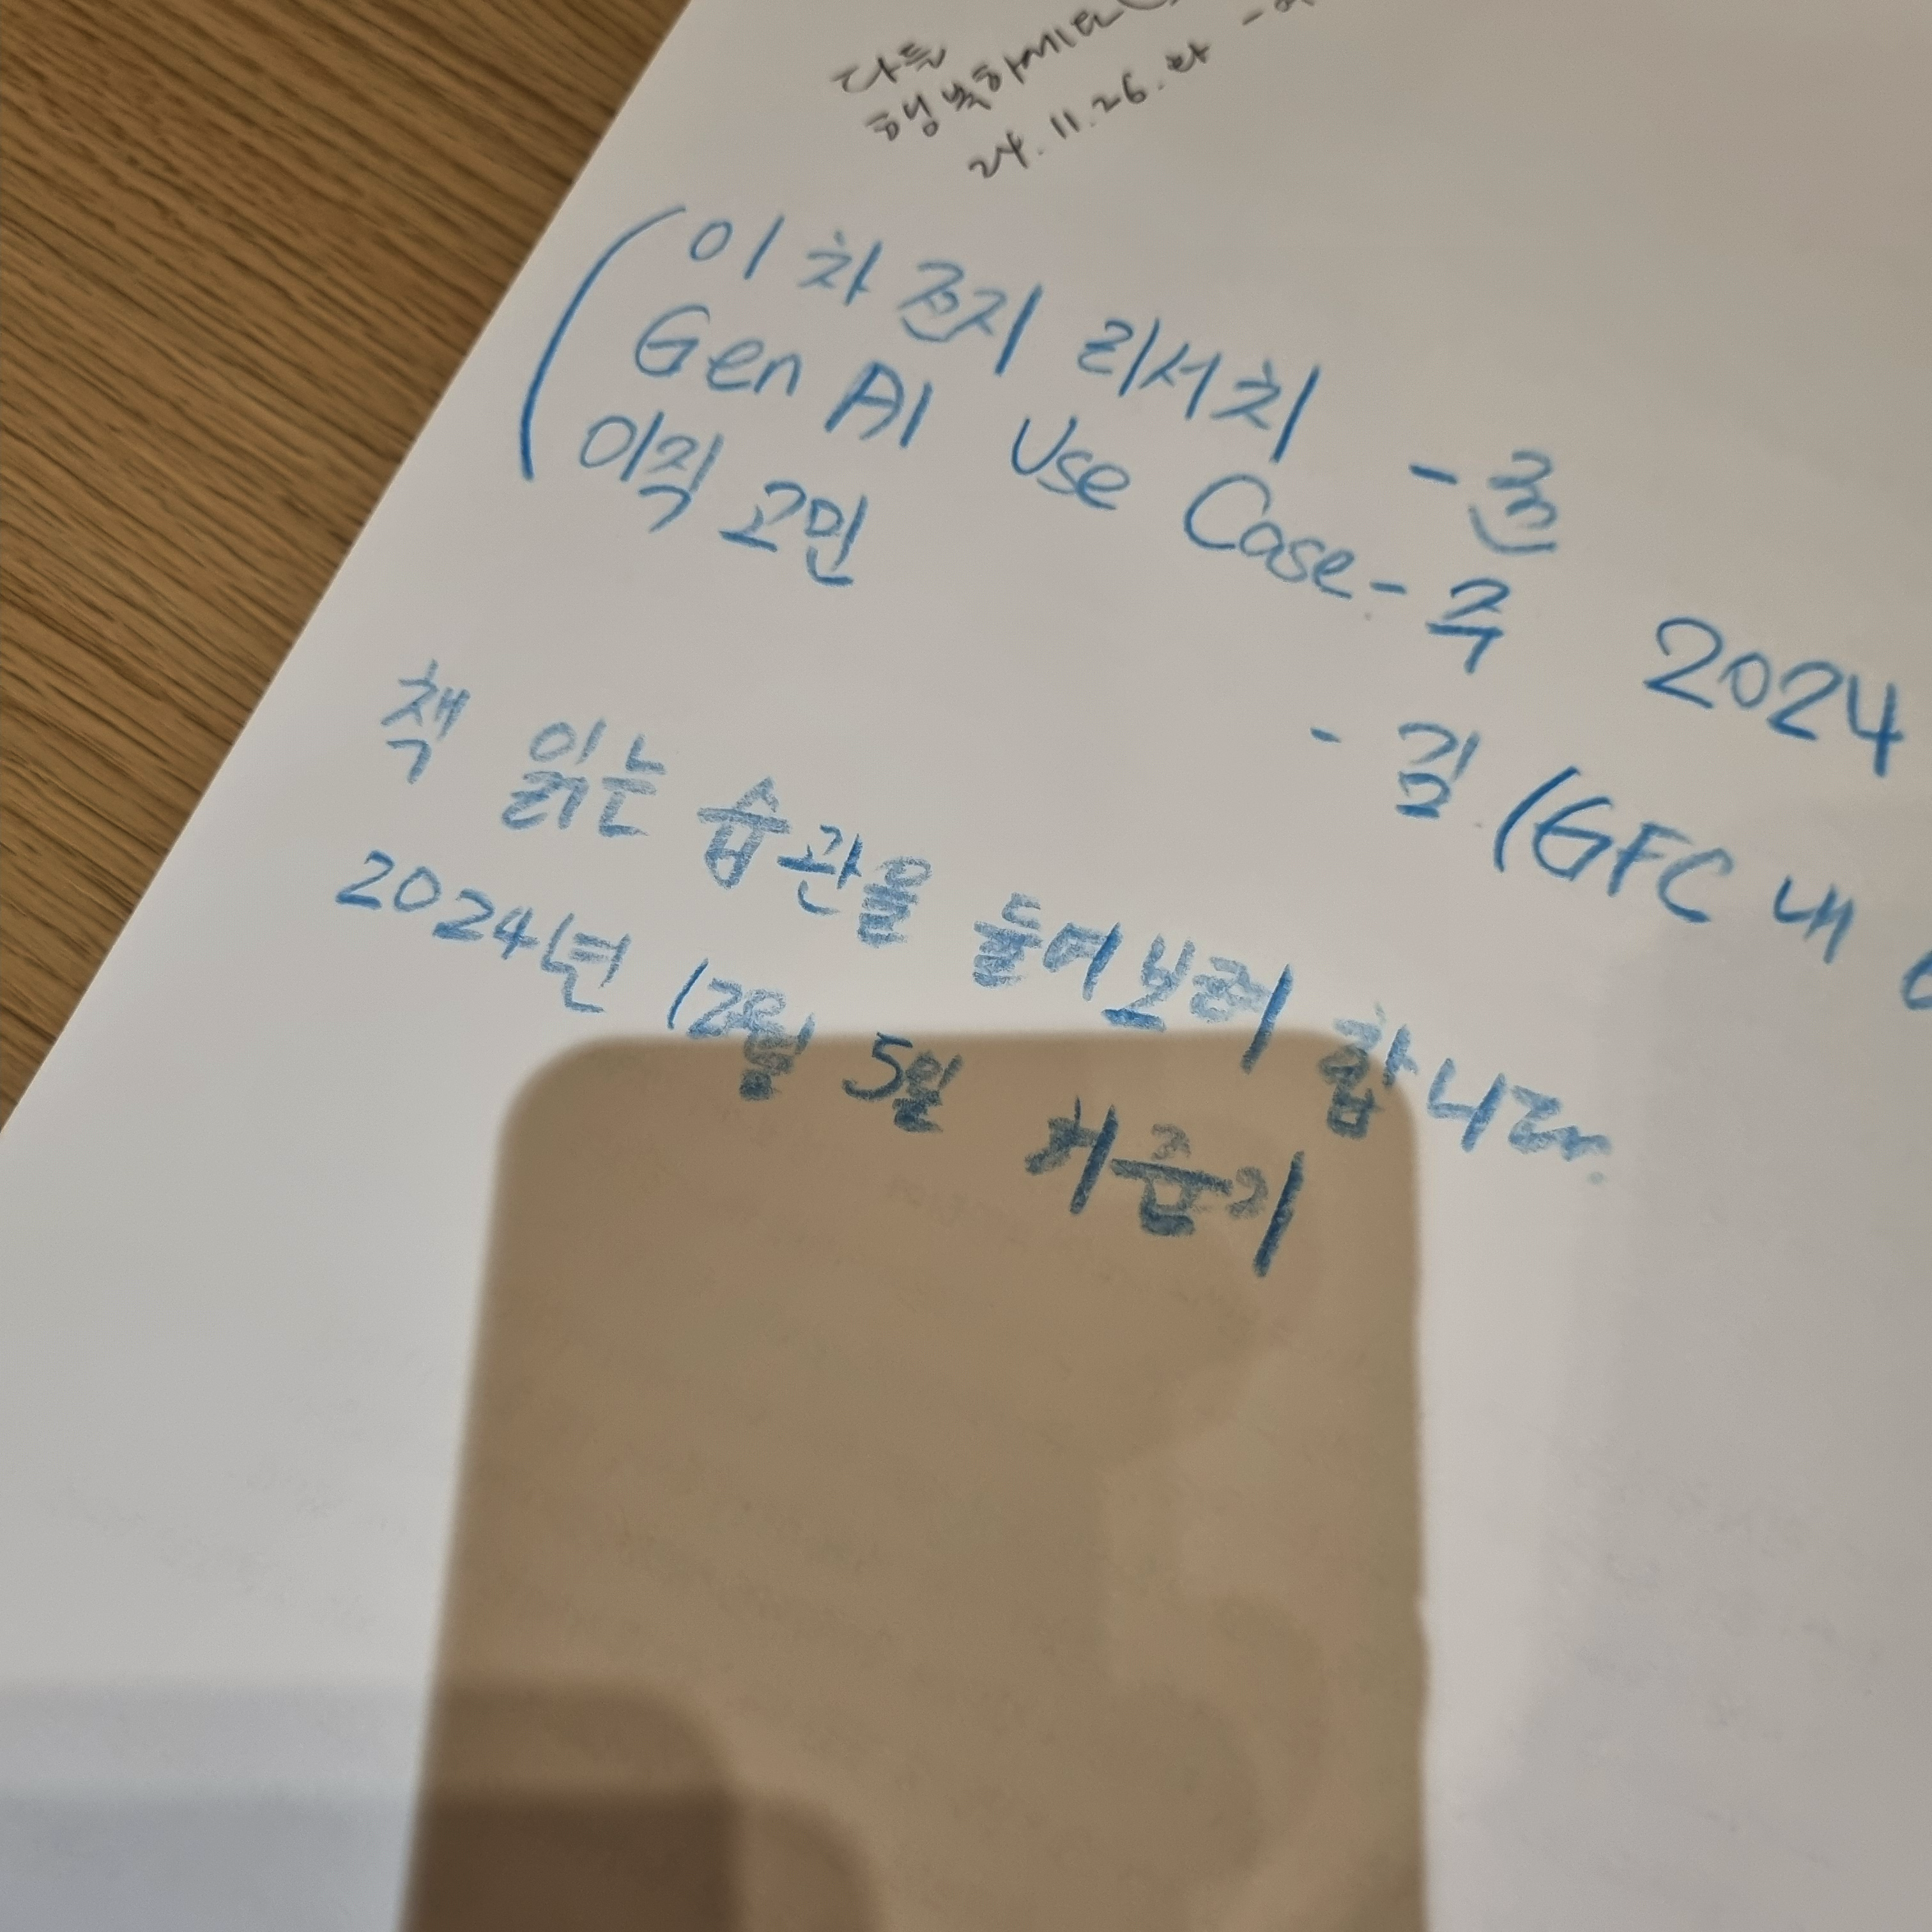 다들
행복하세요
24. 11. 26. 화
이차전지 리서치 -준
Gen AI Use Case - 주 2024
이직 고민 - 김 (GFC 내
책 읽는 습관을 들여보려 합니다.
2024년 12월 5일 허준기